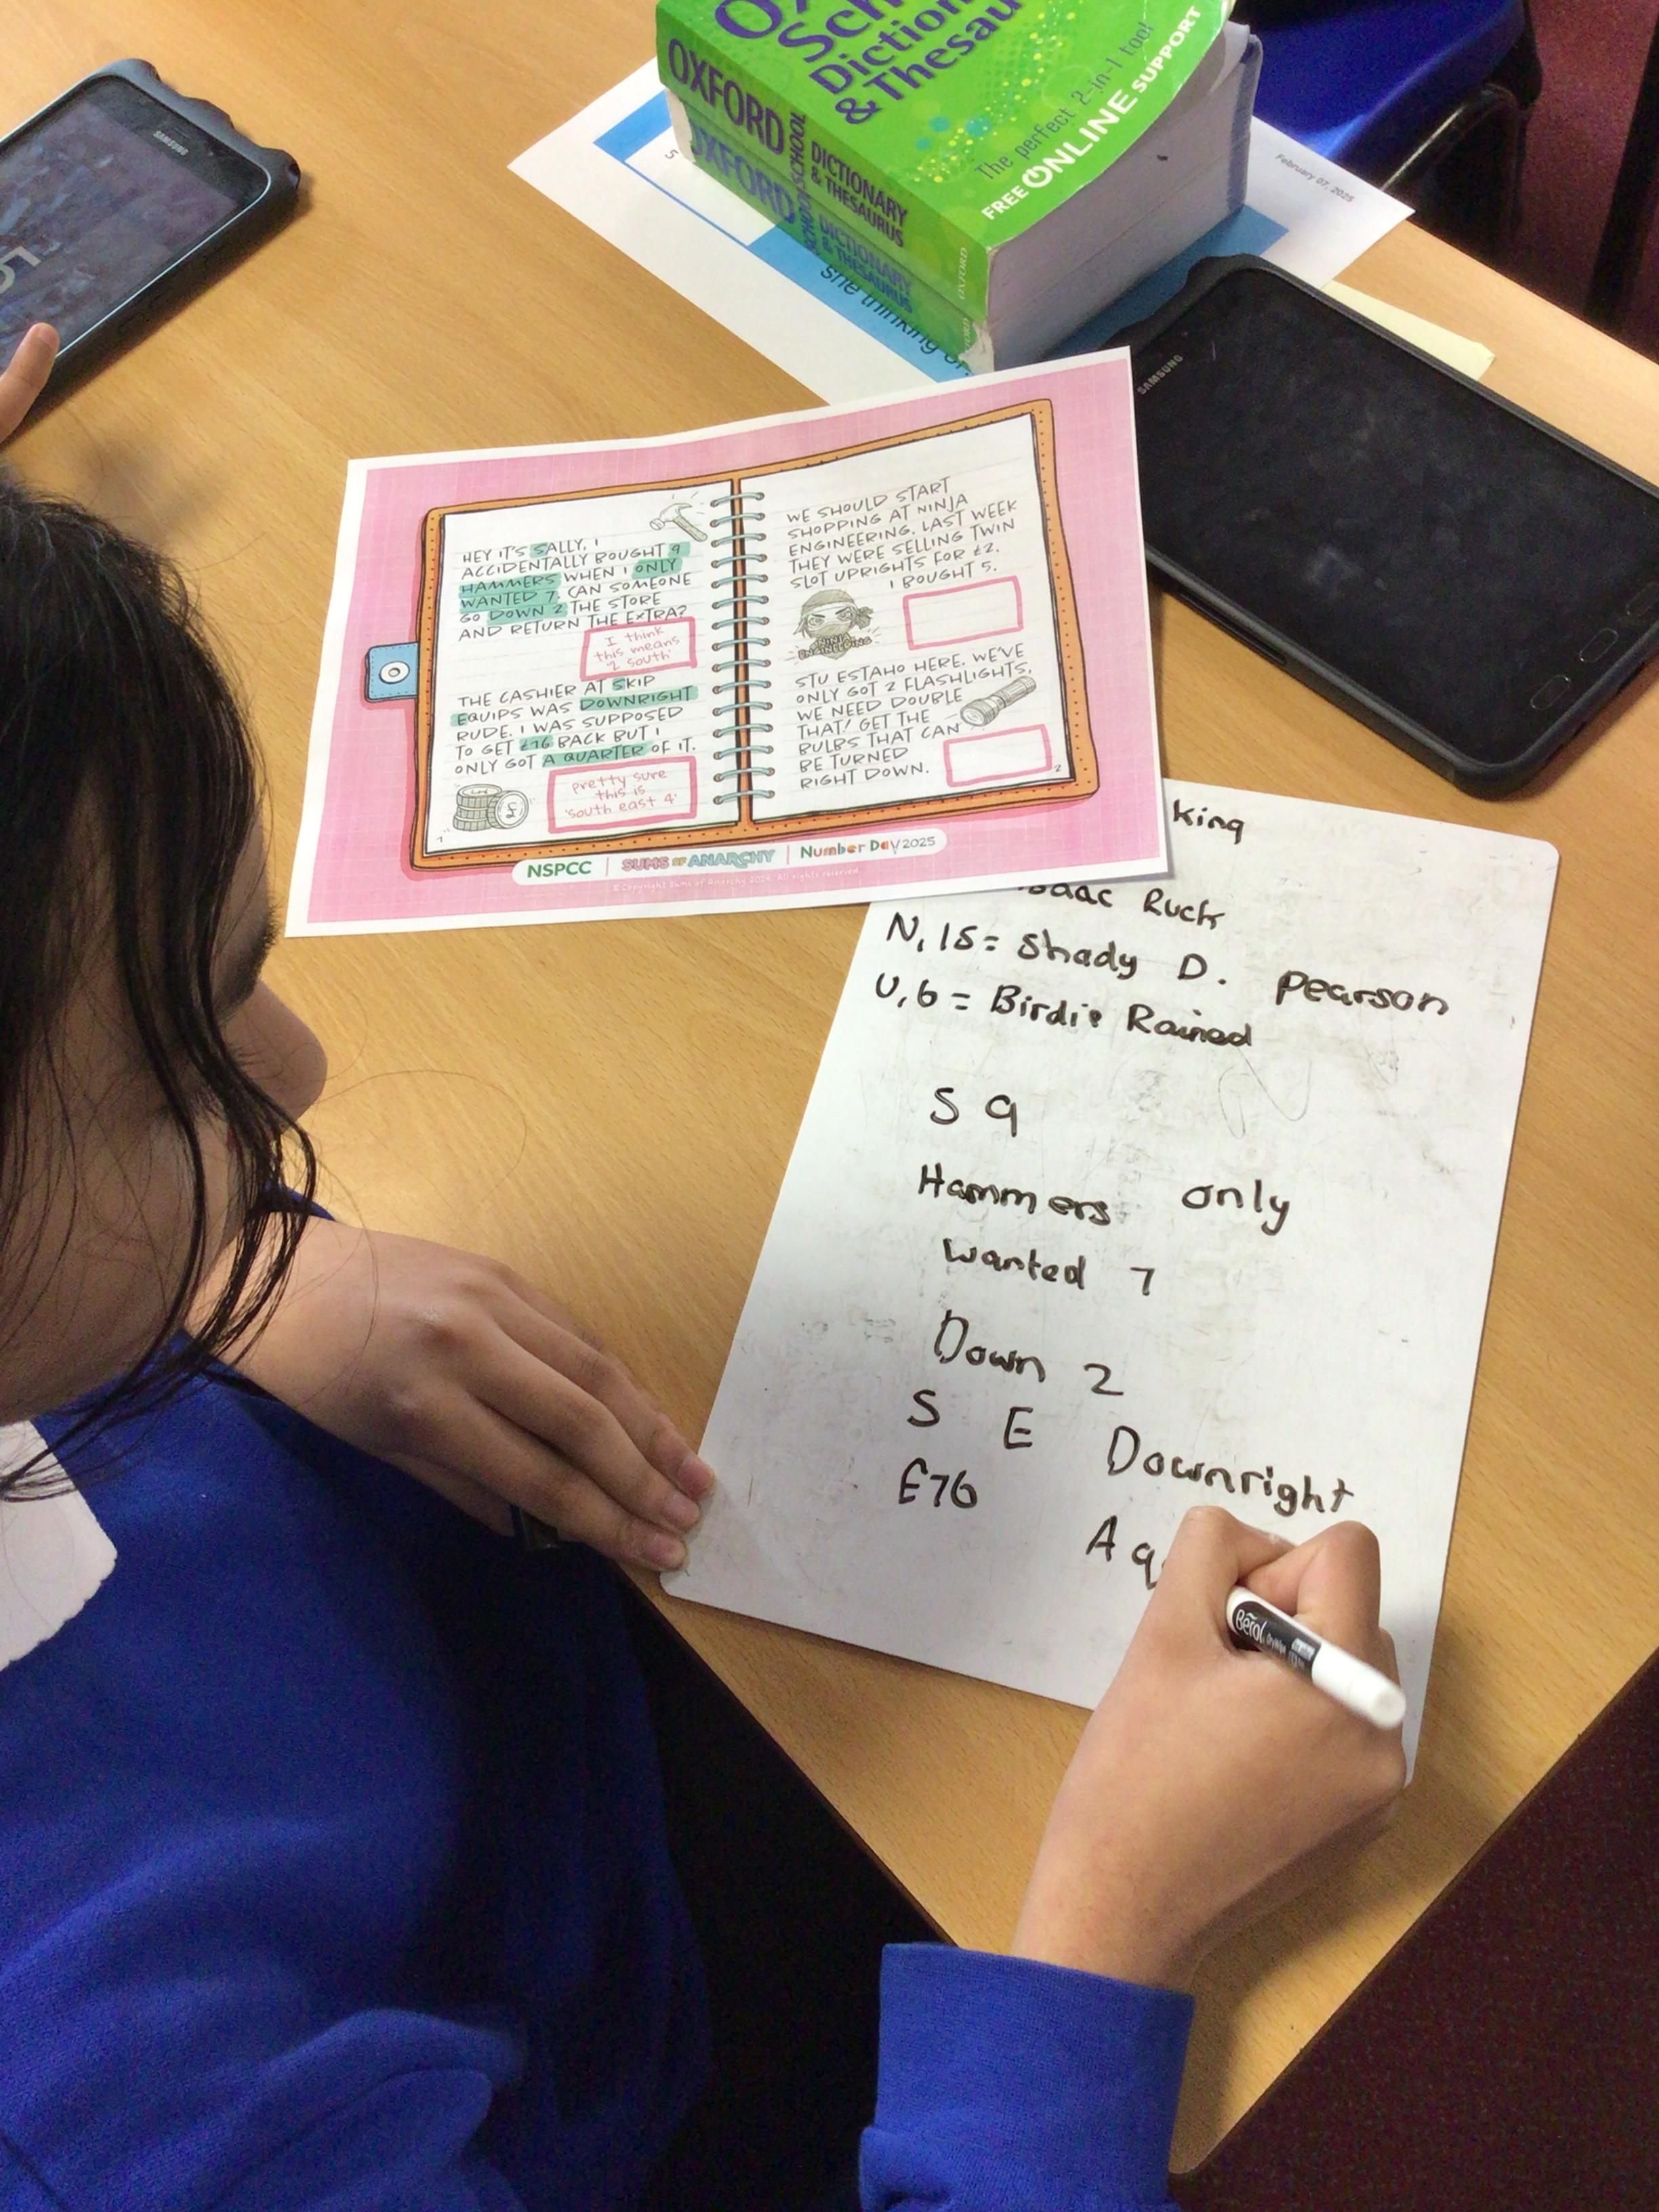 SAMSUNG
OXFORD
Dictionary
& Thesaurus
The perfect 2-in-1 tool
FREE ONLINE SUPPORT
OXFORD SCHOOL DICTIONARY
& THESAURUS
OXFORD
OXFORD SCHOOL DICTIONARY
& THESAURUS
February 07, 2025
5
she thinking of
SAMSUNG
HEY IT'S SALLY, I
ACCIDENTALLY BOUGHT 9
HAMMERS WHEN I ONLY
WANTED 7. CAN SOMEONE
GO DOWN 2 THE STORE
AND RETURN THE EXTRA?
I think
this means
'2 south'
THE CASHIER AT SKIP
EQUIPS WAS DOWNRIGHT
RUDE. I WAS SUPPOSED
TO GET £16 BACK BUT I
ONLY GOT A QUARTER OF IT.
pretty sure
this is
'south east 4'
1
WE SHOULD START
SHOPPING AT NINJA
ENGINEERING. LAST WEEK
THEY WERE SELLING TWIN
SLOT UPRIGHTS FOR £2.
I BOUGHT 5.
NINJA
ENGINEERING
STU ESTAHO HERE. WE'VE
ONLY GOT 2 FLASHLIGHTS.
WE NEED DOUBLE
THAT! GET THE
BULBS THAT CAN
BE TURNED
RIGHT DOWN.
2
NSPCC | SUMS OF ANARCHY | Number Day 2025
© Copyright Sums of Anarchy 2024. All rights reserved
king
Ruck
N, 15 = Shady D. Pearson
U, 6 = Birdie Rained
S 9
Hammers only
wanted 7
Down 2
S E Downright
£76
A
Berol